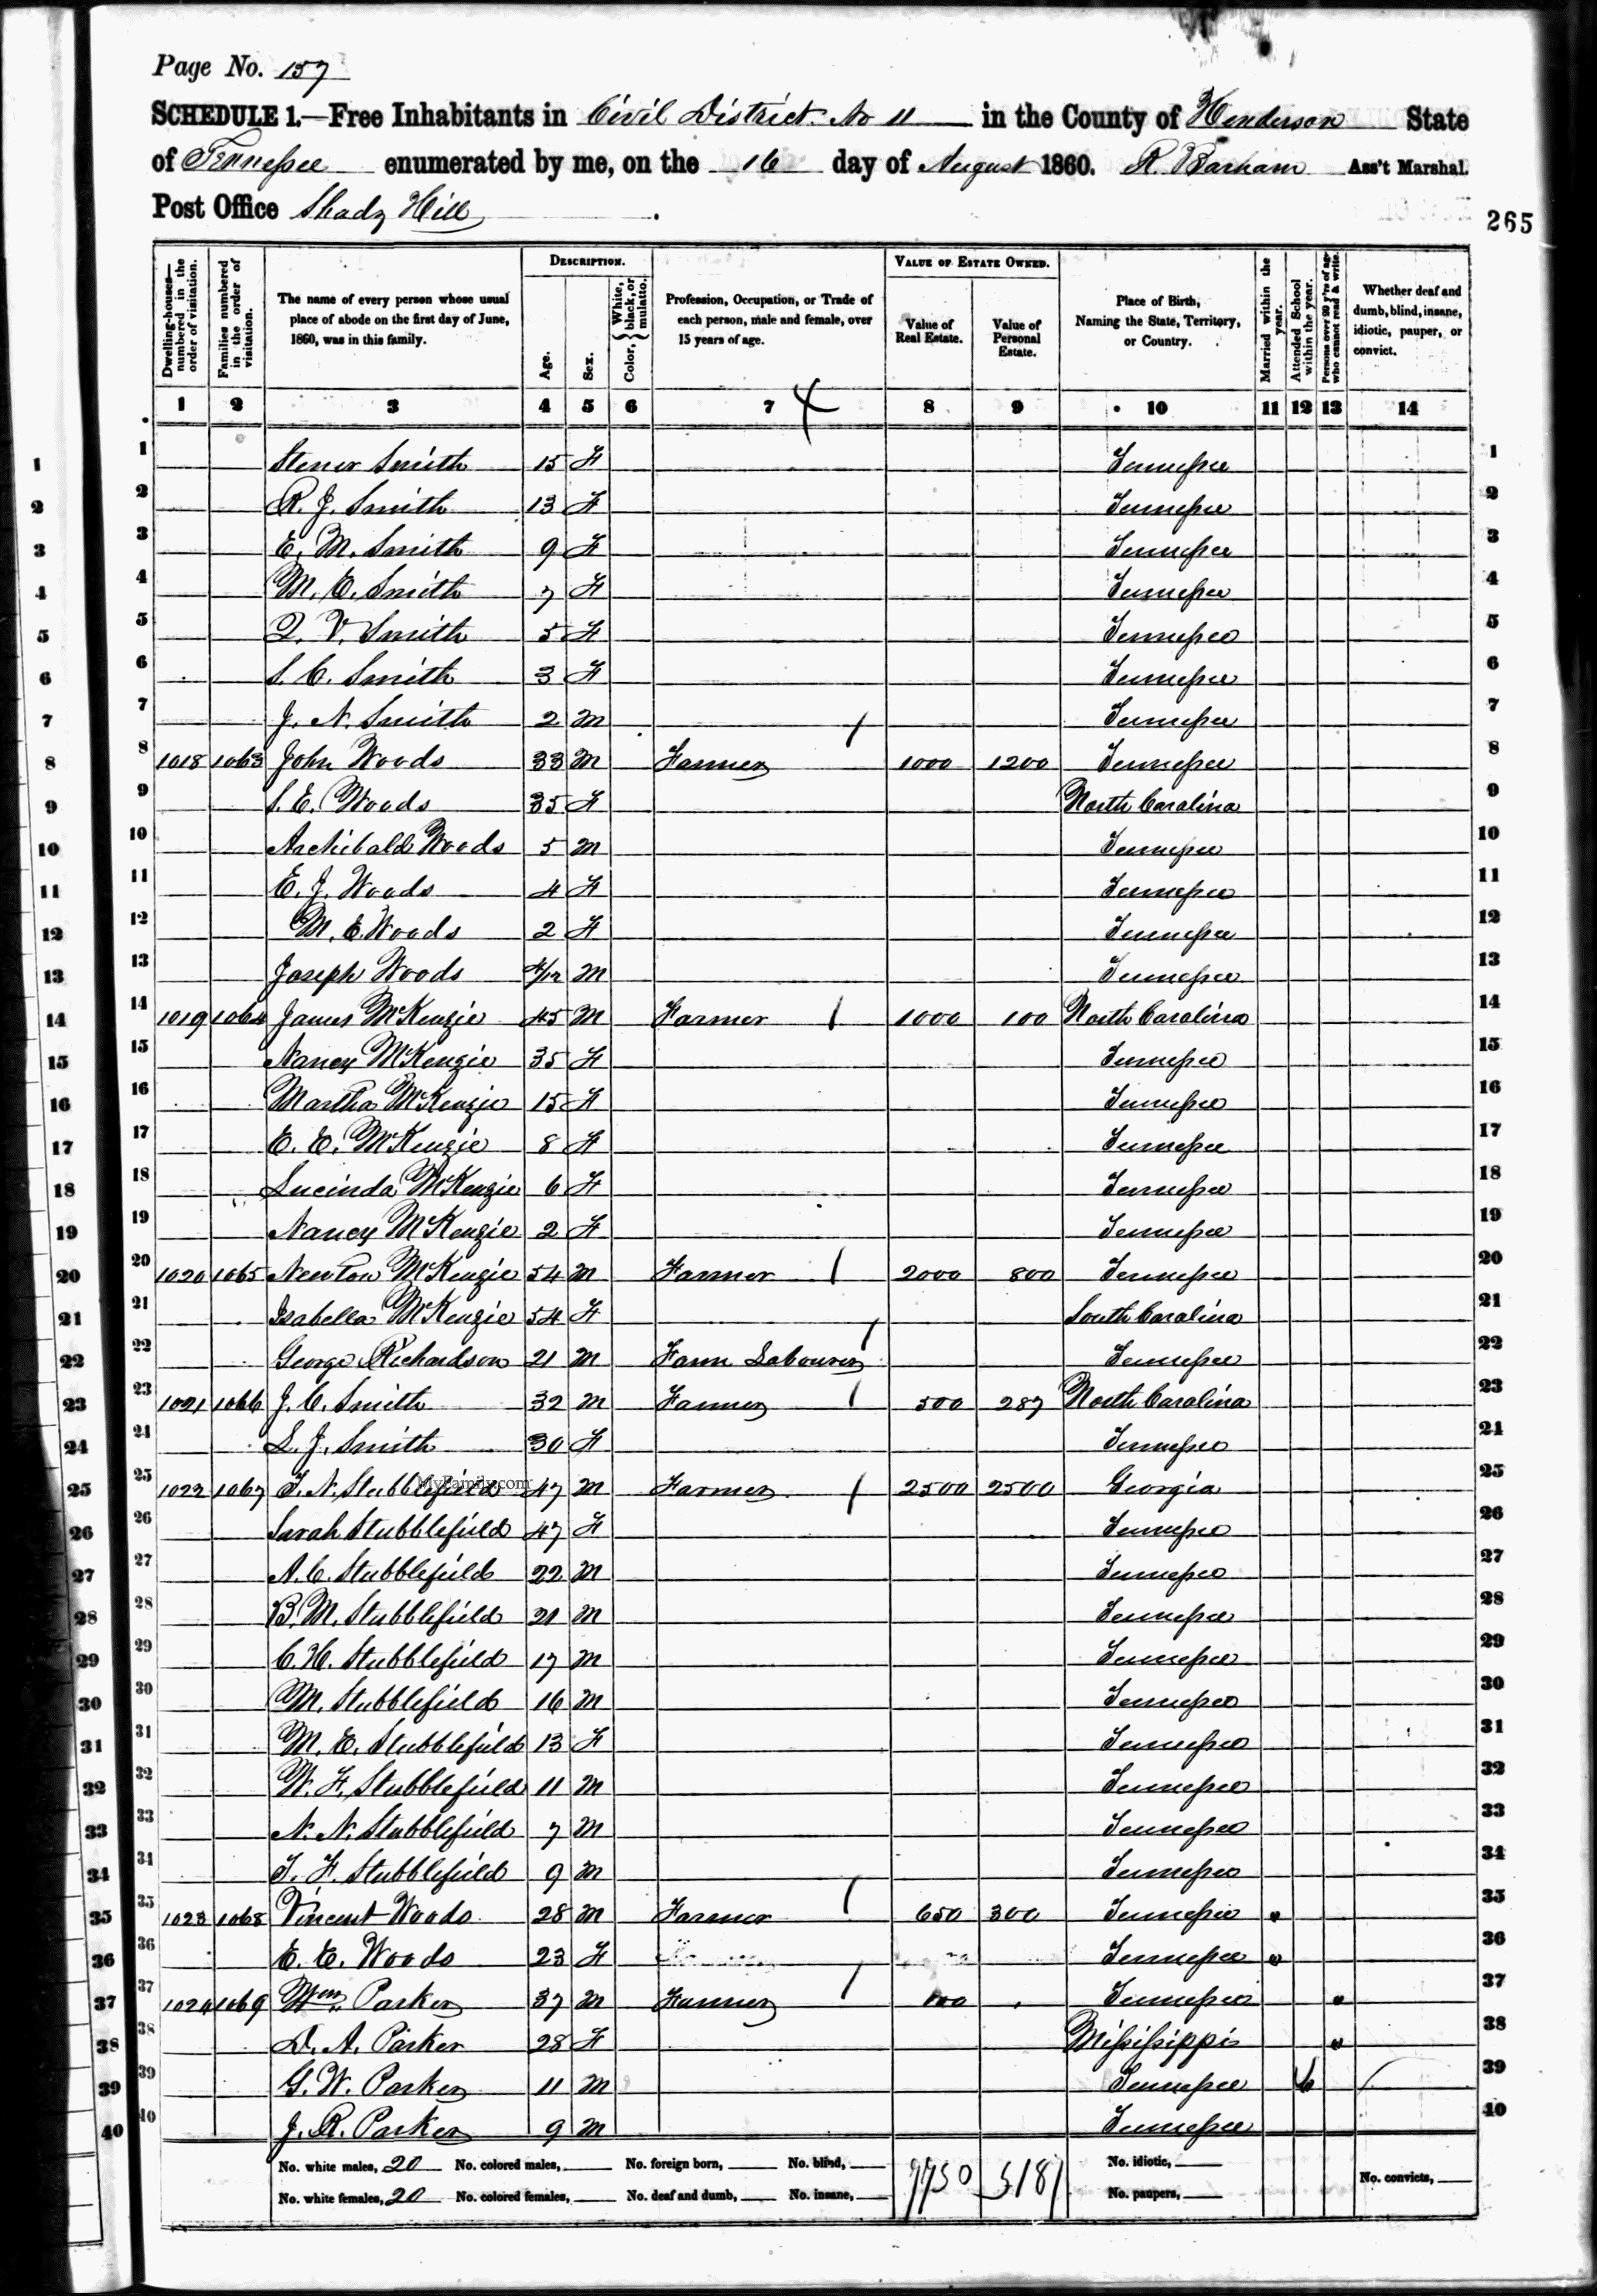 Page No. 157
SCHEDULE 1.—Free Inhabitants in Civil District No 11 in the County of Henderson State
of Tennessee enumerated by me, on the 16 day of August 1860. R. Barham Ass't Marshal.
Post Office Shady Hill
265
Dwelling-houses—numbered in the order of visitation. Families numbered in the order of visitation. The name of every person whose usual place of abode on the first day of June, 1860, was in this family. Description. Age. Sex. Color, White, black, or mulatto. Profession, Occupation, or Trade of each person, male and female, over 15 years of age. Value of Estate Owned. Value of Real Estate. Value of Personal Estate. Place of Birth, Naming the State, Territory, or Country. Married within the year. Attended School within the year. Persons over 20 y'rs of age who cannot read & write. Whether deaf and dumb, blind, insane, idiotic, pauper, or convict.
1 2 3 4 5 6 7 8 9 10 11 12 13 14
1 Smith 15 F Tennessee 1
2 R. J. Smith 13 F Tennessee 2
3 E. M. Smith 9 F Tennessee 3
4 M. E. Smith 7 F Tennessee 4
5 V. Smith 5 F Tennessee 5
6 S. C. Smith 3 F Tennessee 6
7 J. N. Smith 2 M Tennessee 7
8 1018 1063 John Woods 33 M Farmer 1000 1200 Tennessee 8
9 S. E. Woods 35 F North Carolina 9
10 Archibald Woods 5 M Tennessee 10
11 E. J. Woods 4 F Tennessee 11
12 M. E. Woods 2 F Tennessee 12
13 Joseph Woods 4/12 M Tennessee 13
14 1019 1064 James McKenzie 45 M Farmer 1000 100 North Carolina 14
15 Nancy McKenzie 35 F Tennessee 15
16 Martha McKenzie 15 F Tennessee 16
17 E. E. McKenzie 8 F Tennessee 17
18 Lucinda McKenzie 6 F Tennessee 18
19 Nancy McKenzie 2 F Tennessee 19
20 1020 1065 Newton McKenzie 54 M Farmer 2000 800 Tennessee 20
21 Isabella McKenzie 54 F South Carolina 21
22 George Richardson 21 M Farm Labourer Tennessee 22
23 1021 1066 J. C. Smith 32 M Farmer 500 287 North Carolina 23
24 S. J. Smith 30 F Tennessee 24
25 1022 1067 T. N. Stubblefield 47 M Farmer 2500 2500 Georgia 25
MyFamily.com
26 Sarah Stubblefield 47 F Tennessee 26
27 A. C. Stubblefield 22 M Tennessee 27
28 B. M. Stubblefield 21 M Tennessee 28
29 C. H. Stubblefield 17 M Tennessee 29
30 M. Stubblefield 16 M Tennessee 30
31 M. E. Stubblefield 13 F Tennessee 31
32 W. F. Stubblefield 11 M Tennessee 32
33 N. N. Stubblefield 7 M Tennessee 33
34 T. F. Stubblefield 9 M Tennessee 34
35 1023 1068 Vincent Woods 28 M Farmer 650 300 Tennessee 35
36 E. E. Woods 23 F Tennessee 36
37 1024 1069 Wm. Parker 37 M Farmer 100 Tennessee 37
38 D. A. Parker 28 F Mississippi 38
39 G. W. Parker 11 M Tennessee 39
40 J. R. Parker 9 M Tennessee 40
No. white males, 20 No. colored males, No. foreign born, No. blind, 7750 5187 No. idiotic, No. convicts,
No. white females, 20 No. colored females, No. deaf and dumb, No. insane, No. paupers,